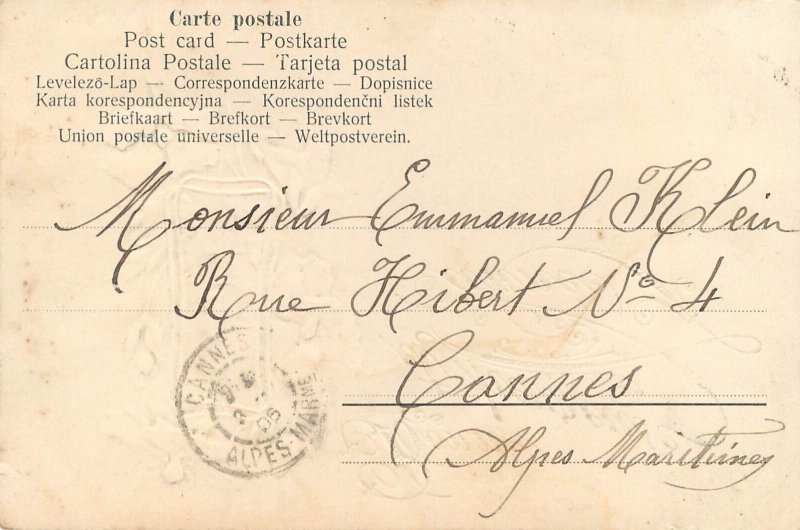 Carte postale
Post card — Postkarte
Cartolina Postale — Tarjeta postal
Levelezõ-Lap — Correspondenzkarte — Dopisnice
Karta korespondencyjna — Korespondenčni listek
Briefkaart — Brefkort — Brevkort
Union postale universelle — Weltpostverein.
Monsieur Emmanuel Klein
Rue Hibert Nº 4
Cannes
Alpes Maritimes
CANNES
ALPES-MARIT